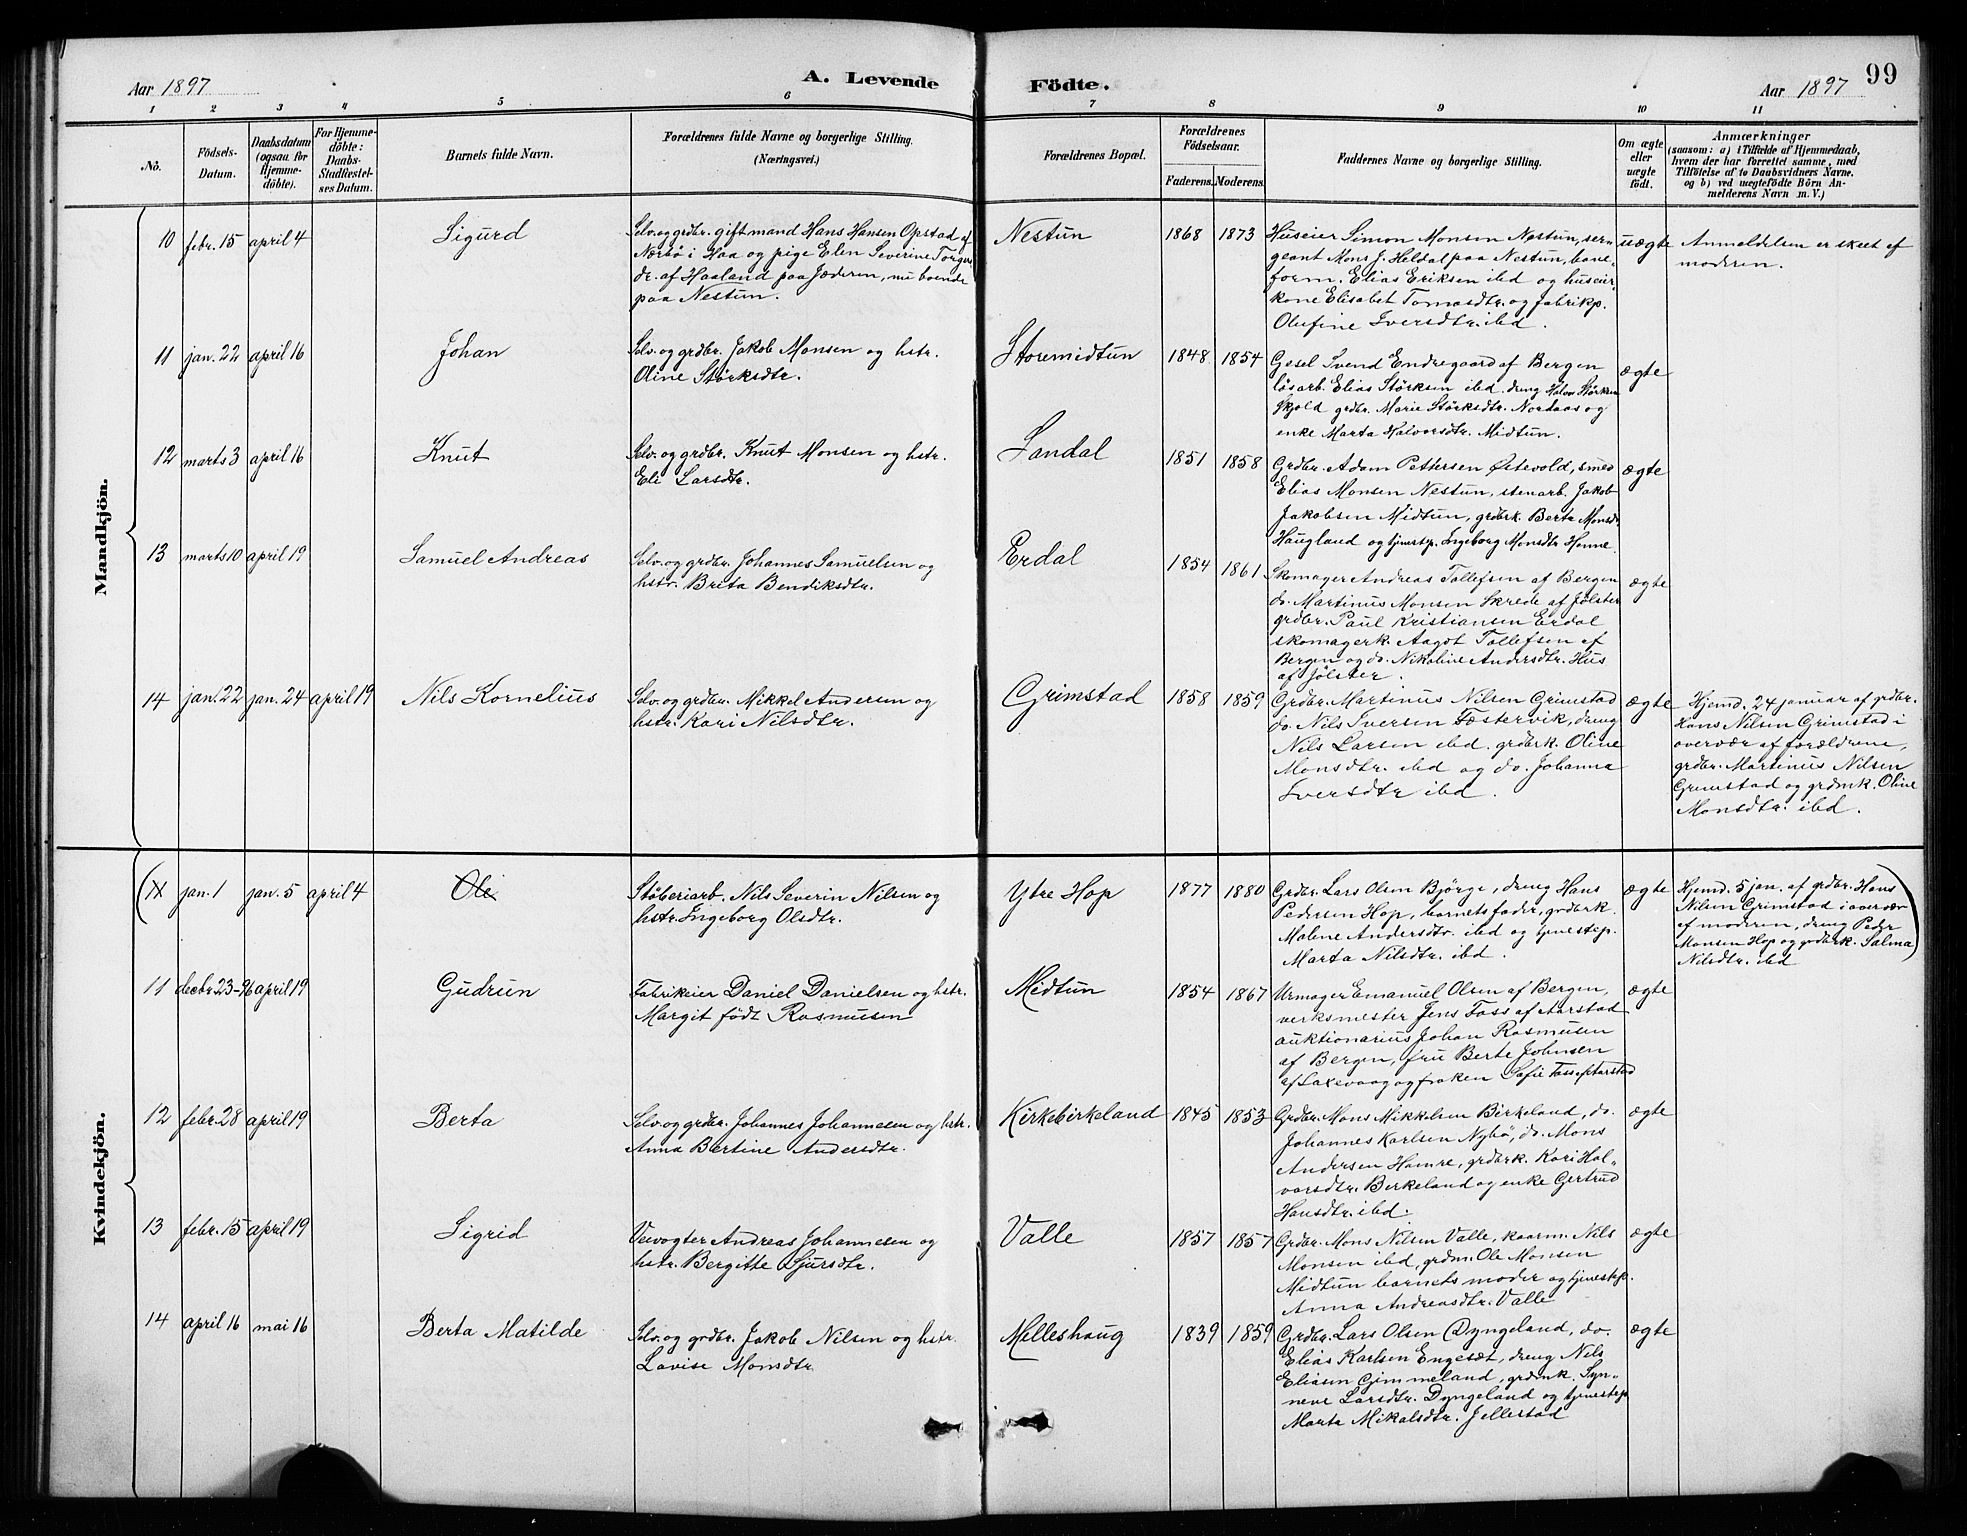 Aar 1897
A. Levende
Födte.
Aar 1897
99
1 2 3 4 5 6 7 8 9 10 11
No.
Födsels-
Datum.
Daabsdatum
(ogsaa for
Hjemme-
döbte).
For Hjemme-
döbte:
Daabs-
Stadfæstel-
ses Datum.
Barnets fulde Navn.
Forældrenes fulde Navne og borgerlige Stilling.
(Næringsvei.)
Forældrenes Bopæl.
Forældrenes
Födselsaar.
Faderens. Moderens.
Faddernes Navne og borgerlige Stilling.
Om ægte
eller
uægte
födt.
Anmærkninger
(saasom: a) i Tilfælde af Hjemmedaab,
hvem der har forrettet samme, med
Tilföielse af to Daabsvidners Navne.
og b) ved uægtefödte Börn An-
melderens Navn m. V.)
Mandkjön.
10 febr. 15 april 4 Sigurd
Selv. og grdbr. gift mand Hans Hansen Opstad af
Nærbö i Haa og pige Elen Severine Torges
dr. af Haaland paa Jæderen, nu boende
paa Nestun.
Nestun 1868 1873
Huseier Simon Monsen Nestun, ser-
geant Mons J. Heldal paa Nestun, bane-
form. Elias Eriksen ibd og huseier-
kone Elisabet Tomasdtr. og fabrikp.
Olufine Iversdtr. ibd.
uægte
Anmeldelsen er skeet af
moderen.
11 jan. 22 april 16 Johan
Selv. og grdbr. Jakob Monsen og hstr.
Oline Störksdtr.
Storemidtun 1848 1854
Gesel Svend Endregaard af Bergen
lösarb. Elias Störksen ibd. dreng Halvor Störksen
Skjold grdbr. Marie Störksdtr. Nordaas og
enke Marta Halvorsdtr. Midtun.
ægte
12 marts 3 april 16 Knut
Selv. og grdbr. Knut Monsen og hstr.
Eli Larsdtr.
Sandal 1851 1858
Grdbr. Adam Pettersen Östevold, smed
Elias Monsen Nestun, stenarb. Jakob
Jakobsen Midtun, grdbrk. Berta Monsdr.
Haugland og tjenestp. Ingeborg Monsdtr Hanne.
ægte
13 marts 10 april 19 Samuel Andreas
Selv. og grdbr. Johannes Samuelsen og
hstr. Brita Bendiksdtr.
Erdal 1854 1861
Skomager Andreas Tollefsen af Bergen
do. Martinus Monsen Skrede af Jølster
grdbr. Paul Kristiansen Erdal
skomagerk. Aagot Tollefsen af
Bergen og do. Nikoline Andersdtr. Hus
af Jølster.
ægte
14 jan. 22 jan. 24 april 19 Nils Kornelius
Selv. og grdbr. Mikkel Andersen og
hstr. Kari Nilsdtr.
Grimstad 1858 1859
Grdbr. Martinus Nilsen Grimstad
do. Nils Iversen Fæstervik, dreng
Nils Larsen ibd. grdbrk. Oline
Monsdtr. ibd og do. Johanna
Iversdtr ibd.
ægte
Hjemd. 24 januar af grdbr.
Hans Nilsen Grimstad i
overvær af forældrene,
grdbr. Martinus Nilsen
Grimstad og grdmk. Oline
Monsdtr. ibd.
Kvindekjön.
jan. 1 jan. 5 april 4 Ole
Stöberiarb. Nils Severin Nilsen og
hstr. Ingeborg Olsdtr.
Ytre Hop 1877 1880
Grdbr. Lars Olsen Björge, dreng Hans
Pedersen Hop, barnets fader, grdbrk.
Malene Andersdtr. ibd og tjenestep.
Marta Nilsdtr. ibd.
ægte
Hjemd. 5 jan. af grdbr. Hans
Nilsen Grimstad i overvær
af moderen, dreng Peder
Monsen Hop og grdbrk. Salma
Nilsdtr. ibd
11 decbr. 23-96 april 19 Gudrun
Fabrikeier Daniel Danielsen og hstr.
Margit födt Rasmusen
Midtun 1854 1867
Urmager Emanuel Olsen af Bergen,
verksmester Jens Fass af Aarstad
auktionarius Johan Rasmusen
af Bergen, fru Berte Johnsen
af Laxevaag og frøken Sofie Fass af Aarstad
ægte
12 febr. 28 april 19 Berta
Selv. og grdbr. Johannes Johannesen og hstr.
Anna Bertine Andersdtr.
Kirkebirkeland 1845 1853
Grdbr. Mons Mikkelsen Birkeland, do.
Johannes Karlsen Nybö, do. Mons
Andersen Hamre, grdbrk. Kari Hal-
vorsdtr. Birkeland og enke Gertrud
Hansdtr. ibd.
ægte
13 febr. 15 april 19 Sigrid
Veivogter Andreas Johannesen og
hstr. Bergitte Sjursdtr.
Valle 1857 1857
Grdbr. Mons Nilsen Valle, kaarm. Nils
Monsen ibd, grdm. Ole Monsen
Midtun barnets moder og tjenestep.
Anna Andreasdtr. Valle
ægte
14 april 16 mai 16 Berta Matilde
Selv. og grdbr. Jakob Nilsen og hstr.
Lovise Monsdtr
Melleshaug 1839 1859
Grdbr. Lars Olsen Dyngeland, do.
Elias Karlsen Engesæt, dreng Nils
Eliasen Gimmeland, grdmk. Syn-
neve Larsdtr. Dyngeland og tjenestep
Marta Mikalsdtr. Jellestad
ægte